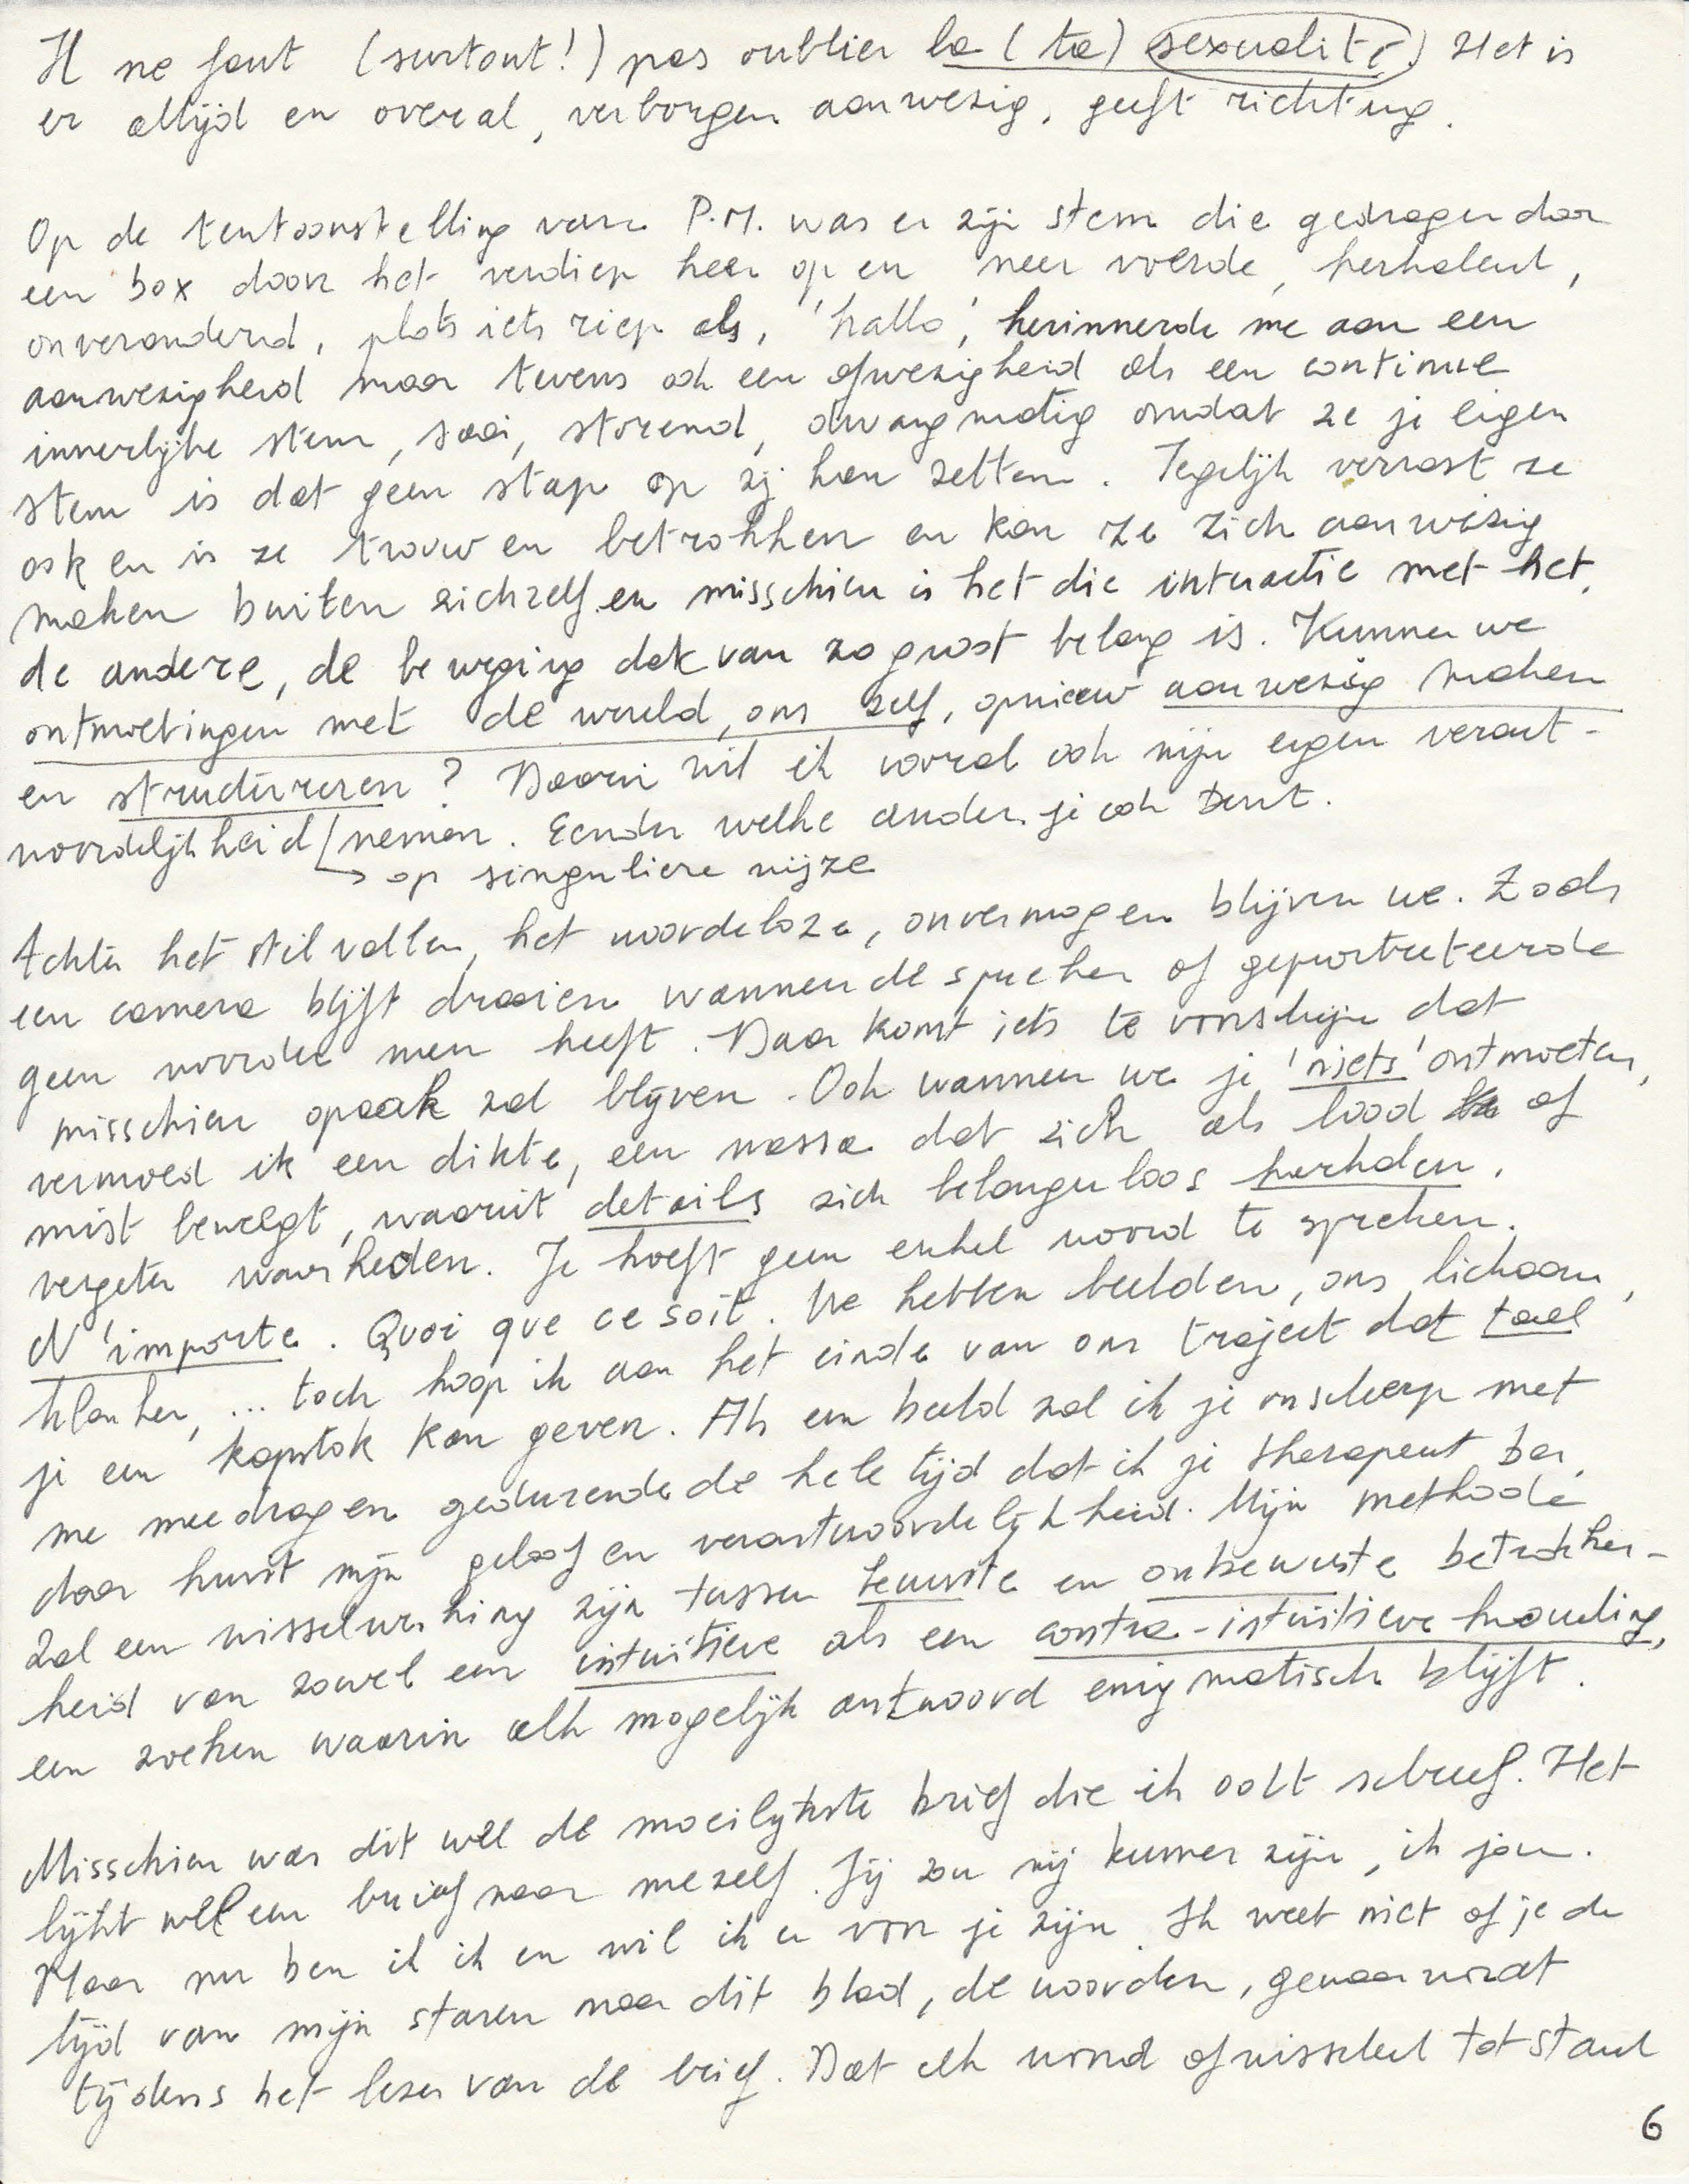 Il ne faut (surtout!) pas oublier la (ta) sexualité. Het is
er altijd en overal, verborgen aanwezig, geeft richting.
Op de tentoonstelling van P.M. was er zijn stem die gedragen door
een box door het verdiep heen op en neer voerde, herhalend,
onveranderd, plots iets riep als, 'hallo', herinnerde me aan een
aanwezigheid maar tevens ook een afwezigheid als een continue
innerlijke stem, saai, storend, dwangmatig omdat ze je eigen
stem is dat geen stap op zij kan zetten. Tegelijk verrast ze
ook en is ze trouw en betrokken en kan ze zich aanwezig
maken buiten zichzelf en misschien is het die interactie met het,
de andere, de beweging dat van zo groot belang is. Kunnen we
ontmoetingen met de wereld, ons zelf, opnieuw aanwezig maken
en structureren? Daarin wil ik vooral ook mijn eigen verant-
woordelijkheid nemen. Eender welke ander je ook bent.
↳ op singuliere wijze
Achter het stilvallen, het woordeloze, onvermogen blijven we. Zoals
een camera blijft draaien wanneer de spreker of geportretteerde
geen woorden meer heeft. Daar komt iets te voorschijn dat
misschien opaak zal blijven. Ook wanneer we je 'niets' ontmoeten,
vermoed ik een dikte, een massa dat zich als lood of
mist beweegt, waaruit details zich belangenloos herhalen,
vergeten waarheden. Je hoeft geen enkel woord te spreken.
N'importe. Quoi que ce soit. We hebben beelden, ons lichaam,
klanken, ... toch hoop ik aan het einde van ons traject dat taal
je een kapstok kan geven. Als een beeld zal ik je onscherp met
me meedragen gedurende de hele tijd dat ik je therapeut ben,
daar huist mijn geloof en verantwoordelijkheid. Mijn methode
zal een wisselwerking zijn tussen bewuste en onbewuste betrokken-
heid van zowel een intuïtieve als een contra-intuïtieve houding,
een zoeken waarin elk mogelijk antwoord enigmatisch blijft.
Misschien was dit wel de moeilijkste brief die ik ooit schreef. Het
lijkt wel een brief naar mezelf. Jij zou mij kunnen zijn, ik jou.
Maar nu ben ik ik en wil ik er voor je zijn. Ik weet niet of je de
tijd van mijn staren naar dit blad, de woorden, gewaar wordt
tijdens het lezen van de brief. Dat elk woord afwisselend tot stand
6